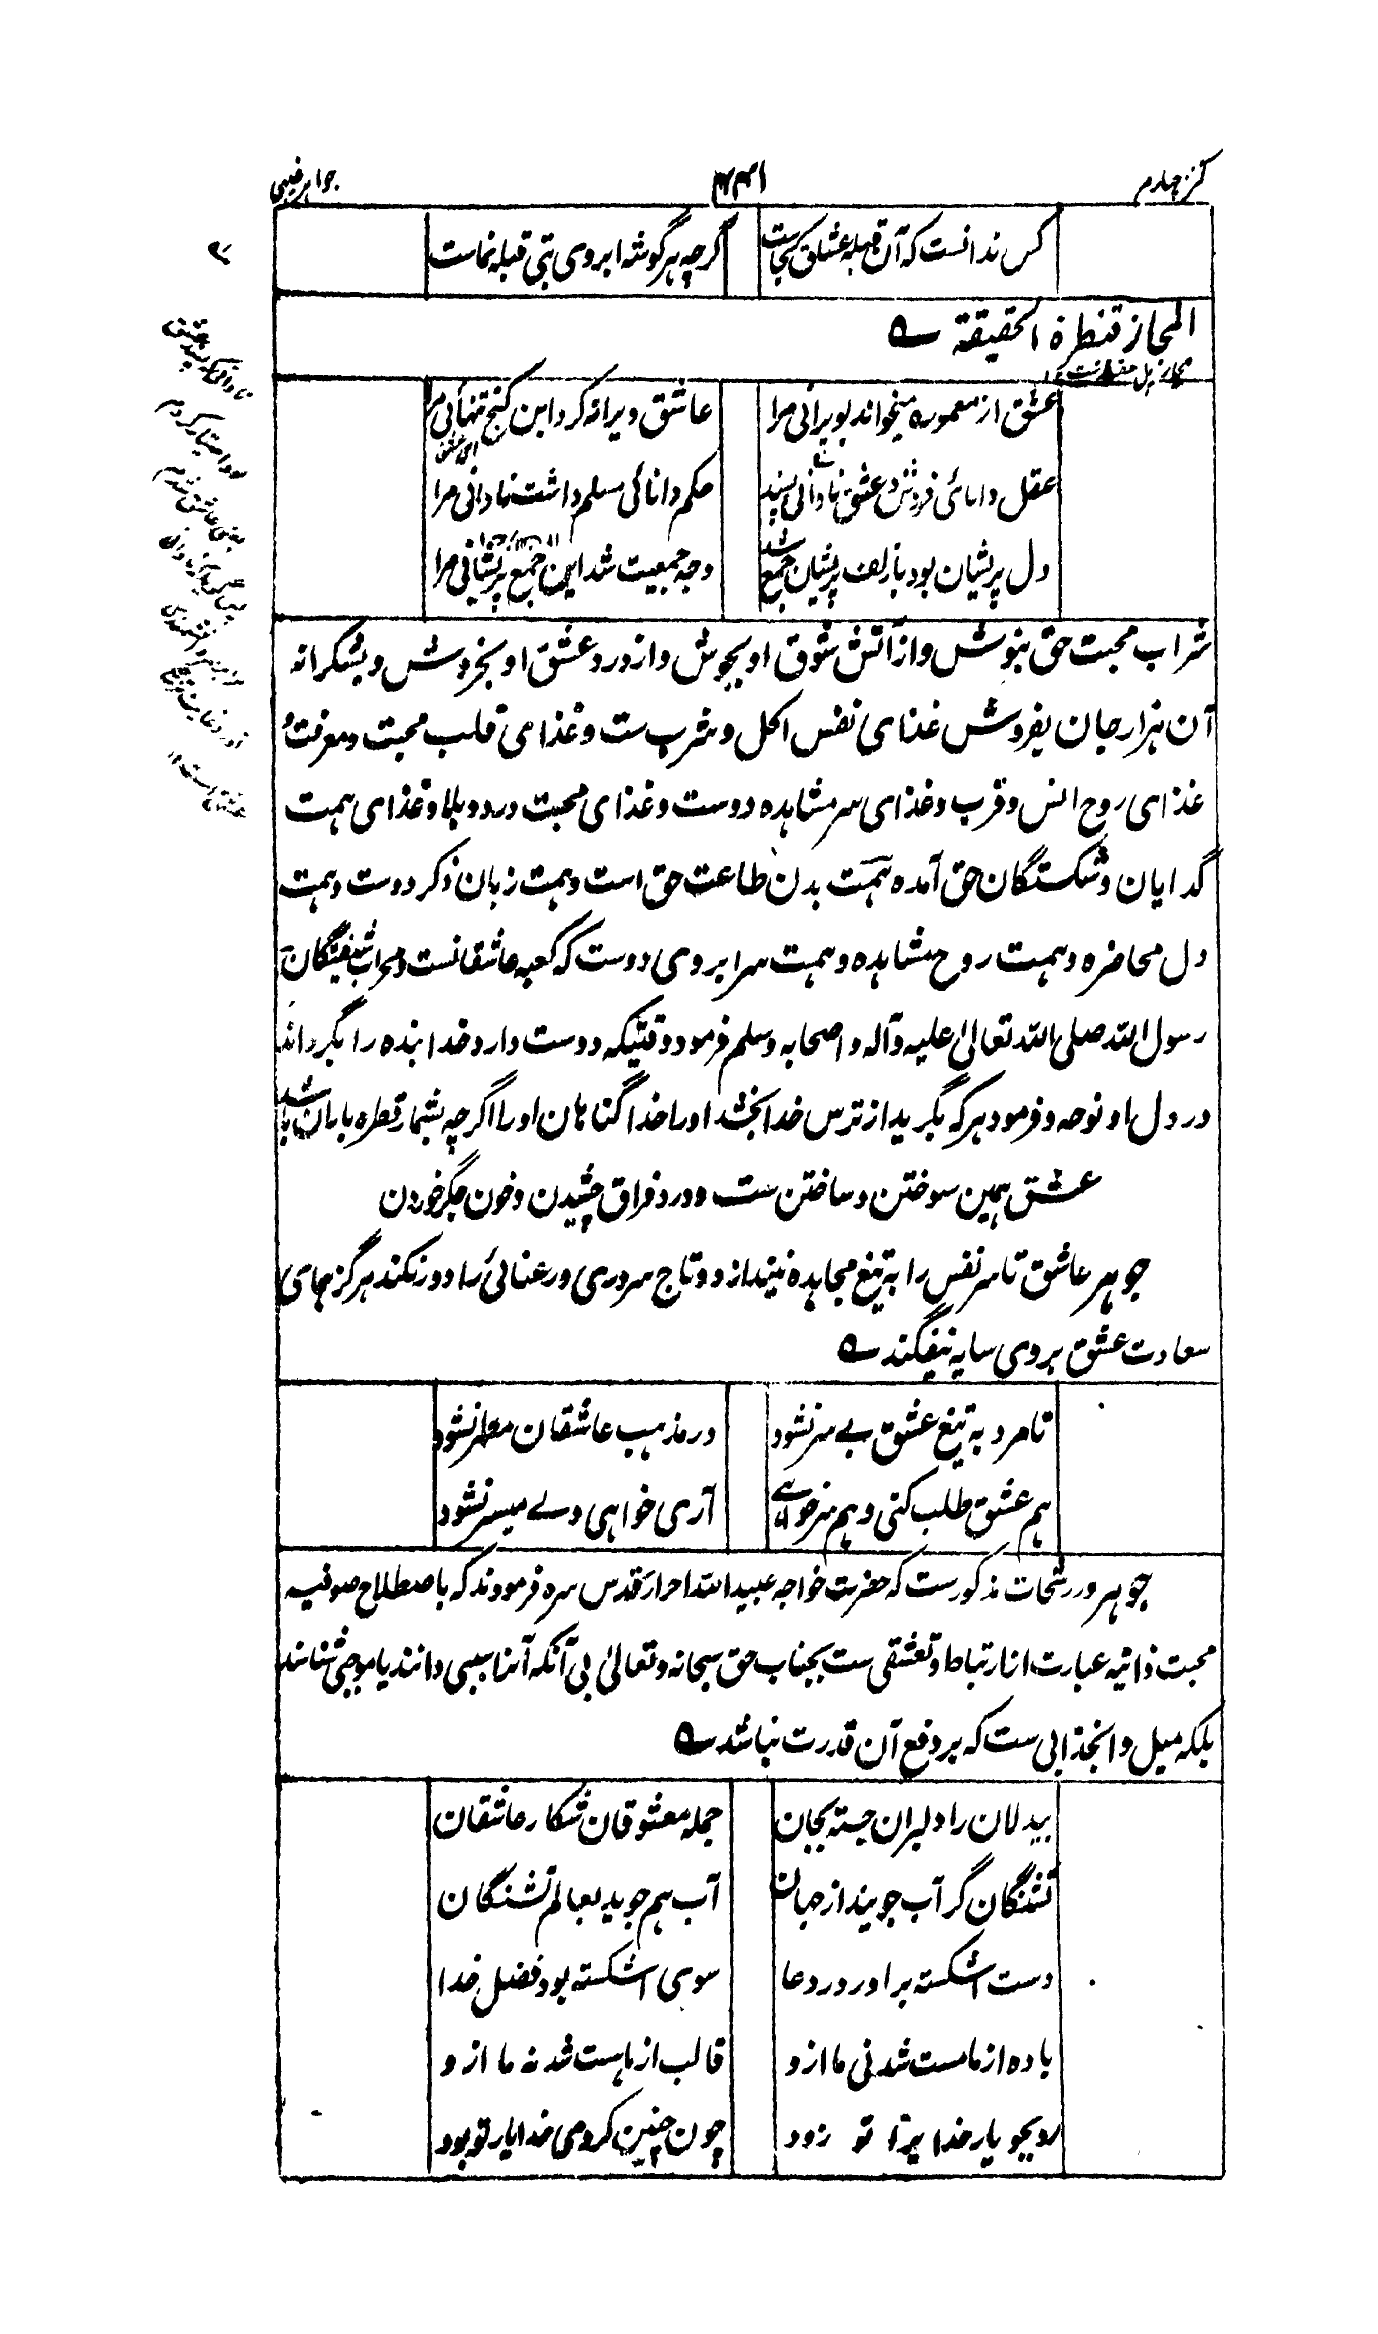 کنز چهارم
جواهر غیبی
کس ندانست که آن قبله عشاق کجاست
گرچه هر گوشه ابروی بتی قبله نماست
المجاز قنطرة الحقیقة
عشق از معموره میخواند بویرانی مرا
عاشق ویرانه کرد این کنج تنهائی مرا
عقل دانائی فروشد عشق نادانی پسند
حکم دانائی مسلم داشت نادانی مرا
دل پریشان بود با زلف پریشان جمع شد
وجه جمعیت شد این جمع پریشانی مرا
شراب محبت حق بنوش و از آتش شوق او بجوش و از درد عشق او بخروش و بشکرانه
آن هزار جان بفروش غذای نفس اکل و شرب ست و غذای قلب محبت و معرفت و
غذای روح انس و قرب و غذای سر مشاهده دوست و غذای محبت درد و بلا و غذای همت
گدایان و شکستگان حق آمده همت بدن طاعت حق است و همت زبان ذکر دوست و همت
دل محاضره و همت روح مشاهده و همت سر ابروی دوست که کعبه عاشقانست و محراب شیفتگان
رسول الله صلی الله تعالیٰ علیه و آله و اصحابه و سلم فرمود وقتیکه دوست دارد خدا بنده را بگرداند
در دل او نوحه و فرمود هر که بگرید از ترس خدا بخشد او را خدا گناهان او را اگرچه بشمار قطره باران باشد
عشق همین سوختن و ساختن ست و درد فراق چشیدن و خون جگر خوردن
جوهر عاشق تا سر نفس را به تیغ مجاهده نیندازد و تاج سروری و رعنائی را دور نکند هرگز همای
سعادت عشق بر وی سایه نیفگند
تا مرد به تیغ عشق بے سر نشود
در مذهب عاشقان مطهر نشود
هم عشق طلب کنی و هم سر خواهے
آری خواهی ولے میسر نشود
جوهر در رشحات مذکورست که حضرت خواجه عبید الله احرار قدس سره فرمودند که باصطلاح صوفیه
محبت ذاتیه عبارت از ارتباط و تعشقی ست بجناب حق سبحانه و تعالیٰ بی آنکه آنرا سببی دانند یا موجبی شناسند
بلکه میل و انجذابی ست که بر دفع آن قدرت نباشد
بیدلان را دلبران جسته بجان
جمله معشوقان شکار عاشقان
تشنگان گر آب جویند از جهان
آب هم جوید بعالم تشنگان
دست اشکسته براور در دعا
سوی اشکسته بود فضل خدا
باده از ما مست شد نی ما از و
قالب از ما هست شد نه ما از و
رو بجو یار خدا را تو زود
چون چنین کردی خدا یار تو بود